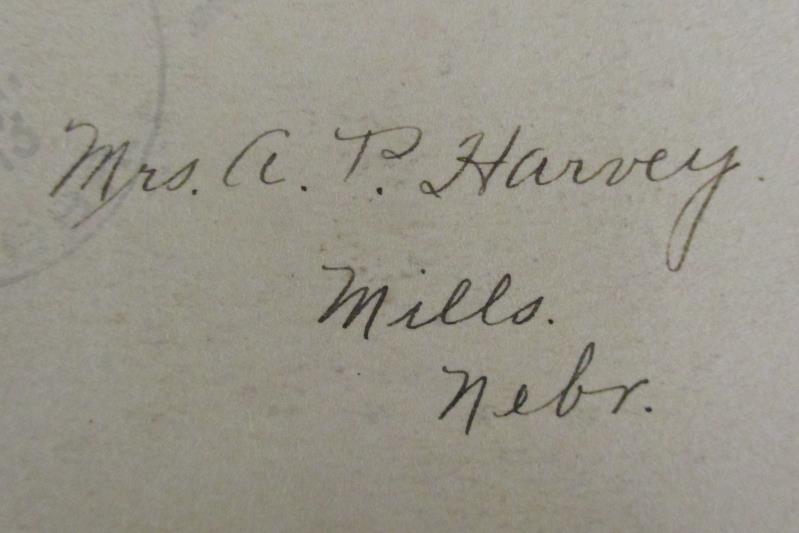 Mrs. A. P. Harvey.
Mills.
Nebr.